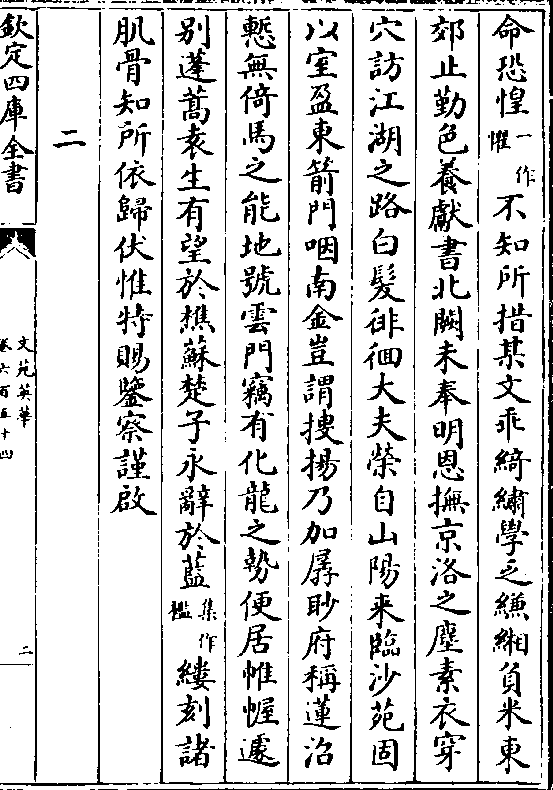 命恐惶一作懼不知所措某文乖綺繡學乏縑緗負米東
郊止勤色養獻書北闕未奉明恩撫京洛之塵素衣穿
穴訪江湖之路白髮徘徊大夫榮自山陽来臨沙苑固
以室盈東箭門咽南金豈謂搜揚乃加孱眇府稱蓮沼
慙無倚馬之能地號雲門竊有化龍之勢便居帷幄遽
别蓬蒿袁生有望於樵蘇楚子永辭於藍集作襤縷刻諸
肌骨知所依歸伏惟特賜鑒察謹啟
二
欽定四庫全書
文苑英華
卷六百五十四
二